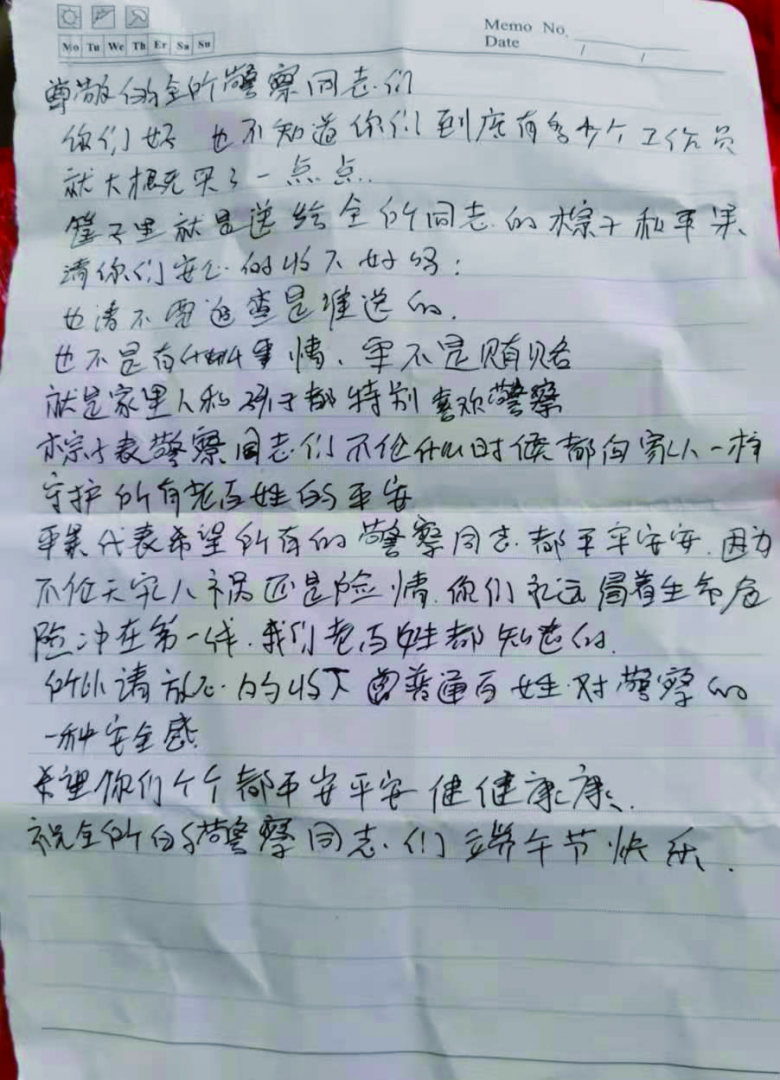 Memo No.
Date / /
Mo Tu We Th Fr Sa Su
尊敬的全所警察同志们
你们好 也不知道你们到底有多少个工作员
就大概先买了一点点..
筐子里就是送给全所同志的棕子和平果、
请你们安心的收下好吗:
也请不要追查是谁送的.
也不是有什么事情、更不是贿赂
就是家里人和孩子都特别喜欢警察
棕子表警察同志们不伦什么时候都向家人一样
守护所有老百姓的平安
平果代表希望所有的警察同志都平平安安.因为
不伦天灾人祸还是险情.你们永远冒着生命危
险冲在第一线.我们老百姓都知道的.
所以请放心的收下 普通百姓对警察的
一种安全感
希望你们个个都平安平安健健康康、
祝全所的警察同志们端午节快乐.